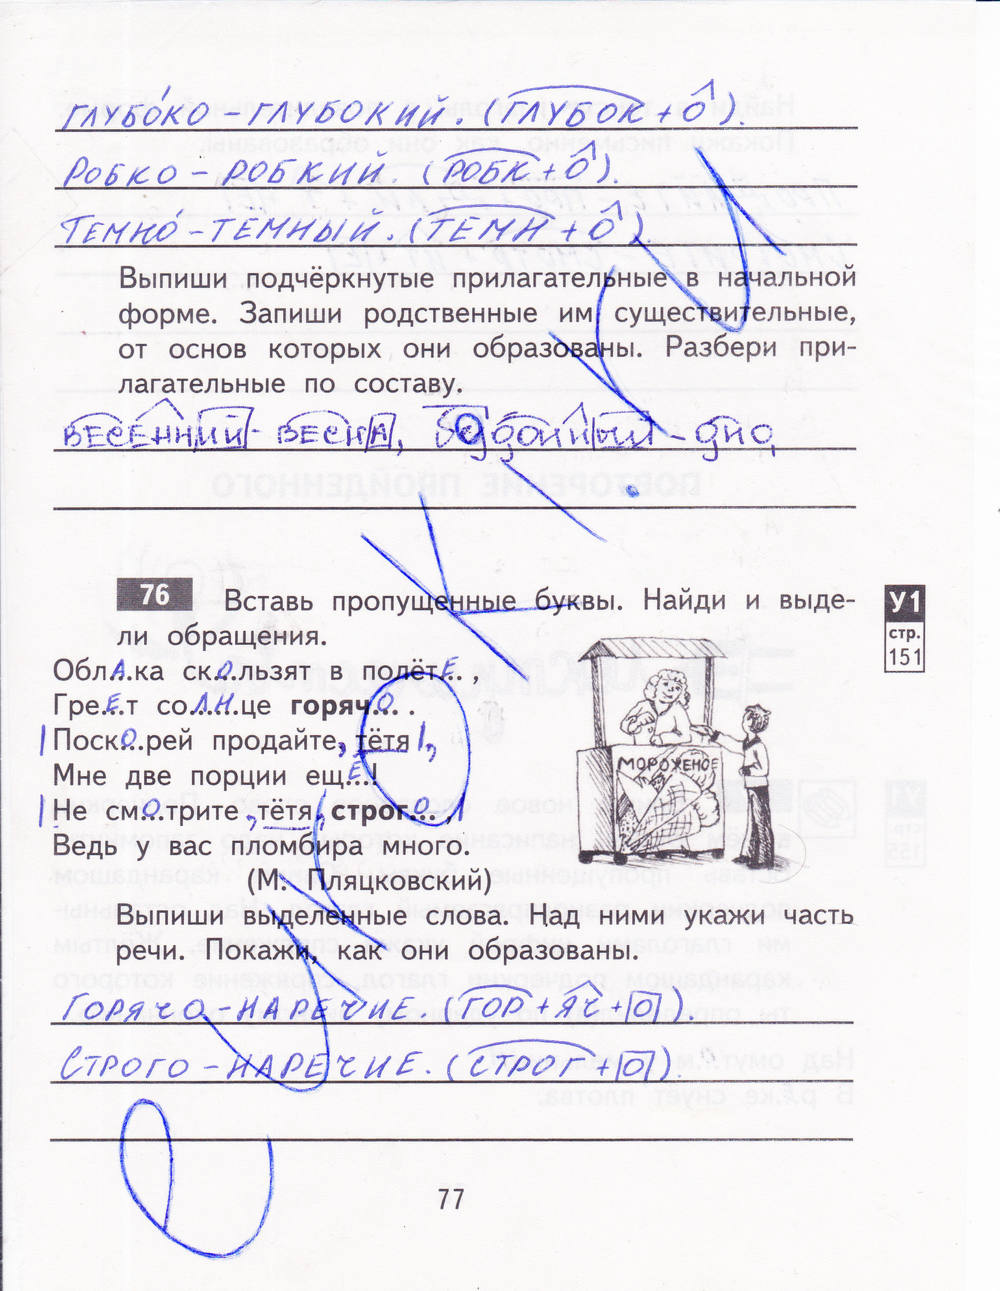 ГЛУБОКО – ГЛУБОКИЙ. (ГЛУБОК + О).
РОБКО – РОБКИЙ. (РОБК + О).
ТЕМНО – ТЕМНЫЙ. (ТЕМН + О)
Выпиши подчёркнутые прилагательные в начальной
форме. Запиши родственные им существительные,
от основ которых они образованы. Разбери при-
лагательные по составу.
ВЕСЕННИЙ - ВЕСНА, бездонный – дно,
76 Вставь пропущенные буквы. Найди и выде-
ли обращения.
У1
стр.
151
ОблА.ка ск.о.льзят в полёт.Е. ,
Гре.Е.т со.ЛН.це горяч.О. .
Поск.О.рей продайте, тётя!,
Мне две порции ещ.Ё.!
Не см.О.трите, тётя, строг.О. ,
Ведь у вас пломбира много.
(М. Пляцковский)
МОРОЖЕНОЕ
Выпиши выделенные слова. Над ними укажи часть
речи. Покажи, как они образованы.
ГОРЯЧО – НАРЕЧИЕ. (ГОР + ЯЧ + О).
СТРОГО – НАРЕЧИЕ. (СТРОГ + О).
77